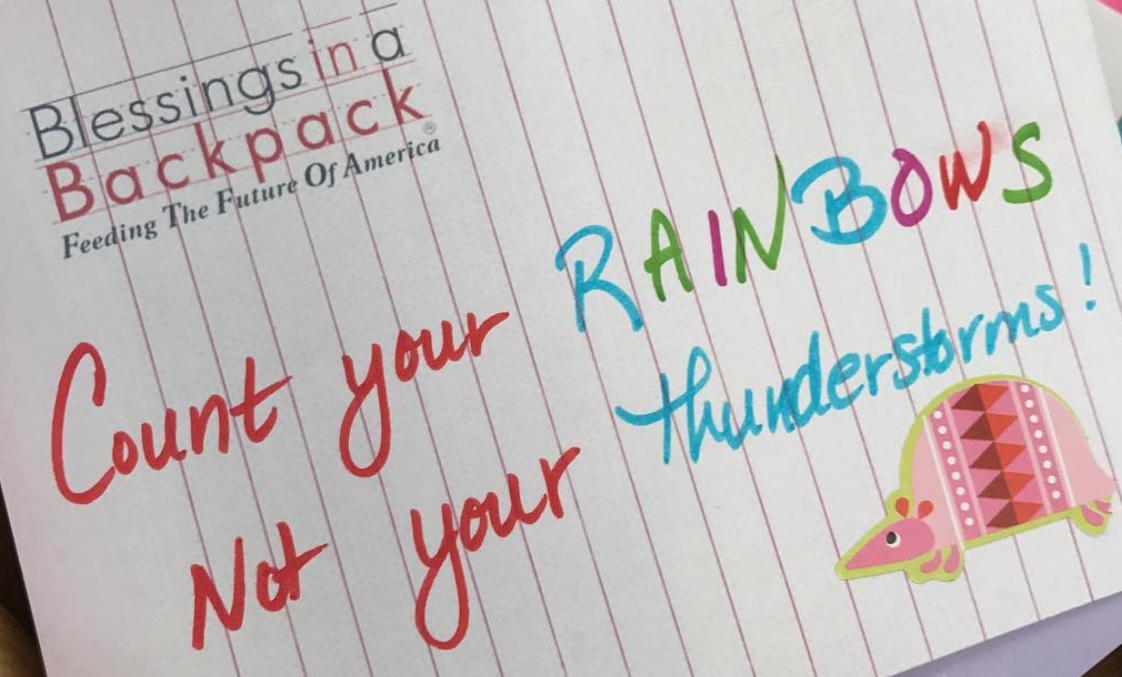 Blessings in a
Backpack®
Feeding The Future Of America
Count your RAINBOWS
Not your thunderstorms!